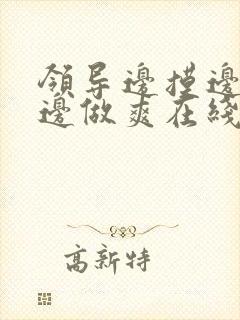 領导邊摸邊
邊做爽在綫
高新特